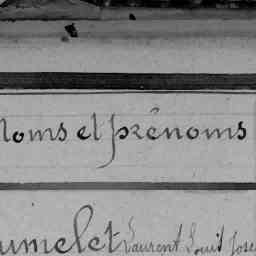 Noms et prénoms
umelet Laurent Louis Jose